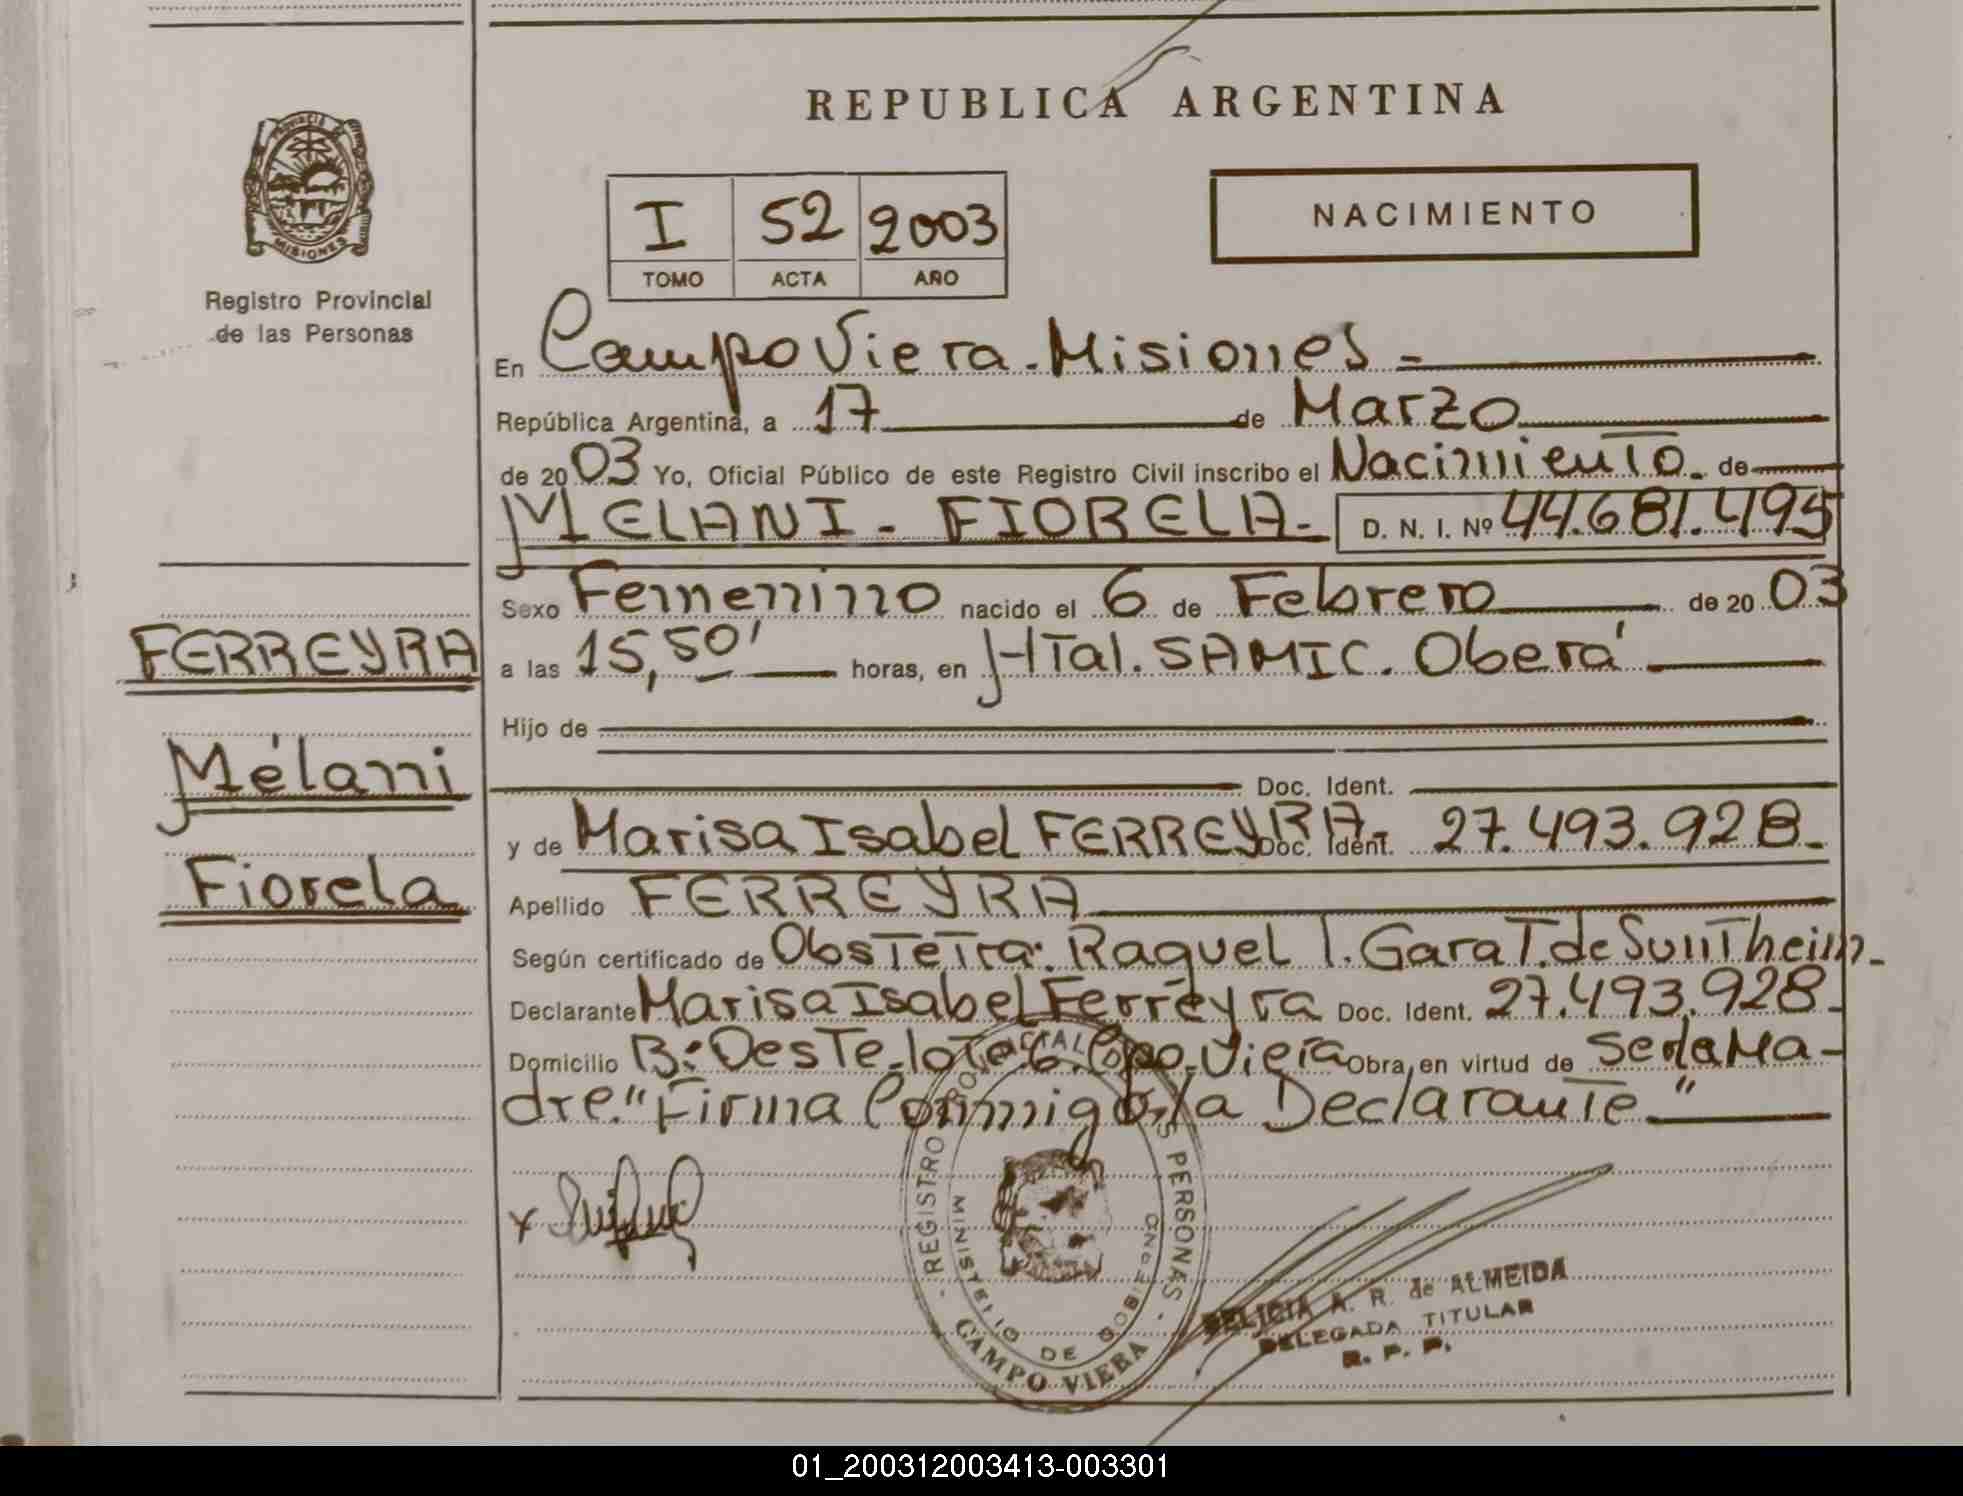 REPUBLICA ARGENTINA
PROVINCIA DE
MISIONES
Registro Provincial
de las Personas
I 52 2003
TOMO ACTA AÑO
NACIMIENTO
En Campo Viera - Misiones =
República Argentina, a 17 de Marzo
de 2003 Yo, Oficial Público de este Registro Civil inscribo el Nacimiento de
MELANI - FIORELA - D. N. I. Nº 44.681.495
Sexo Femenino nacido el 6 de Febrero de 2003
FERREYRA
a las 15,50' horas, en Htal. SAMIC. Oberá
Hijo de
Mélani
Doc. Ident.
y de Marisa Isabel FERREYRA - Doc. Ident. 27.493.928.-
Fiorela
Apellido FERREYRA
Según certificado de Obstetra: Raquel I. Garat. de Suntheim -
Declarante Marisa Isabel Ferreyra Doc. Ident. 27.493.928 -
Domicilio B: Oeste - lote 6. Cpo. Viera Obra, en virtud de ser la Ma-
dre." Firma Conmigo, la Declarante "
REGISTRO PROVINCIAL DE LAS PERSONAS
MINISTERIO DE GOBIERNO
CAMPO VIERA
x
FELICIA A. R. de ALMEIDA
DELEGADA TITULAR
R. P. P.
01_200312003413-003301